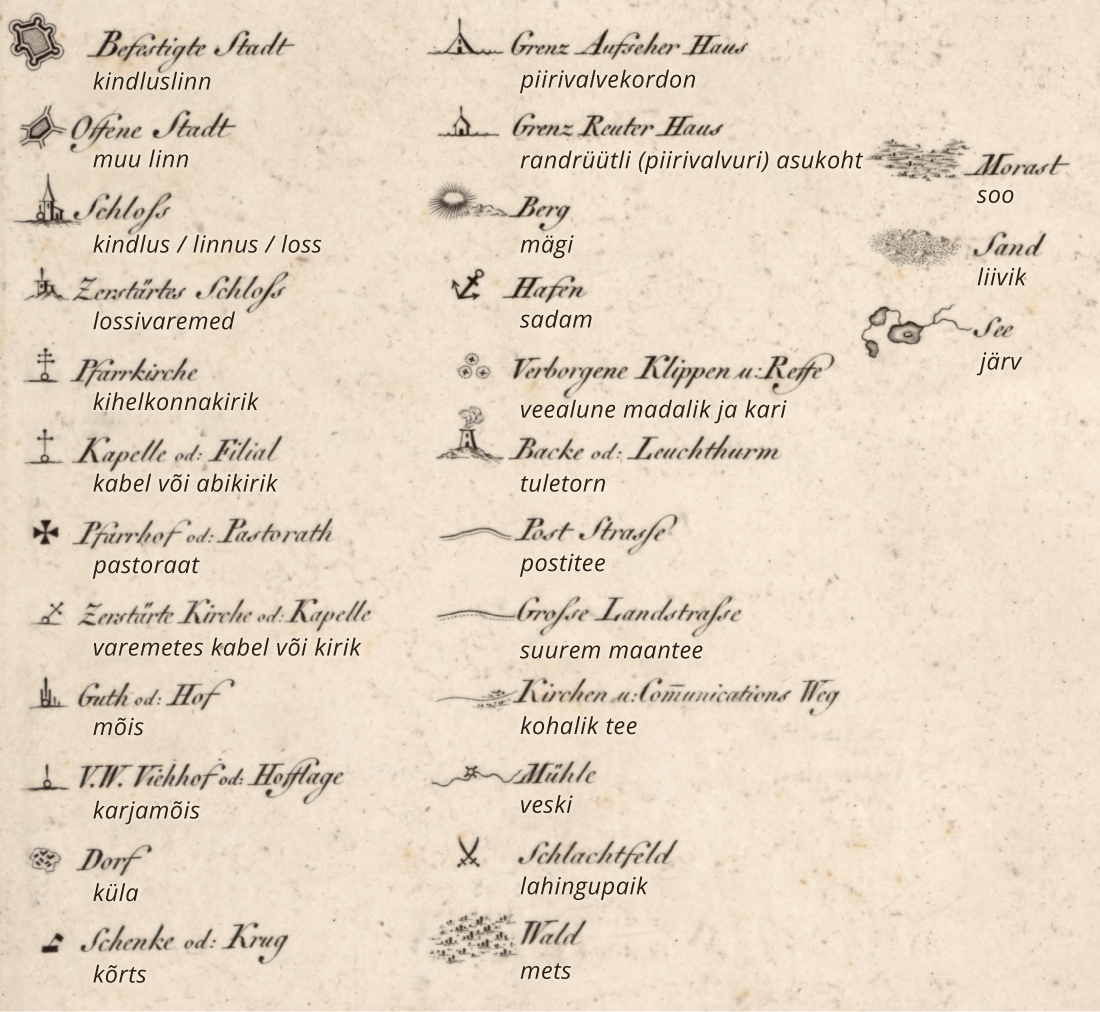 Befestigte Stadt
kindluslinn
Offene Stadt
muu linn
Schloſs
kindlus / linnus / loss
Zerstärtes Schloſs
lossivaremed
Pfarrkirche
kihelkonnakirik
Kapelle od: Filial
kabel või abikirik
Pfarrhof od: Pastorath
pastoraat
Zerstärte Kirche od: Kapelle
varemetes kabel või kirik
Guth od: Hof
mõis
V.W. Viehhof od: Hofflage
karjamõis
Dorf
küla
Schenke od: Krug
kõrts
Grenz Aufseher Haus
piirivalvekordon
Grenz Reuter Haus
randrüütli (piirivalvuri) asukoht
Berg
mägi
Hafen
sadam
Verborgene Klippen u: Reffe
veealune madalik ja kari
Backe od: Leuchthurm
tuletorn
Post Straſse
postitee
Groſse Landstraſse
suurem maantee
Kirchen u: Com̄unications Weg
kohalik tee
Mühle
veski
Schlachtfeld
lahingupaik
Wald
mets
Morast
soo
Sand
liivik
See
järv